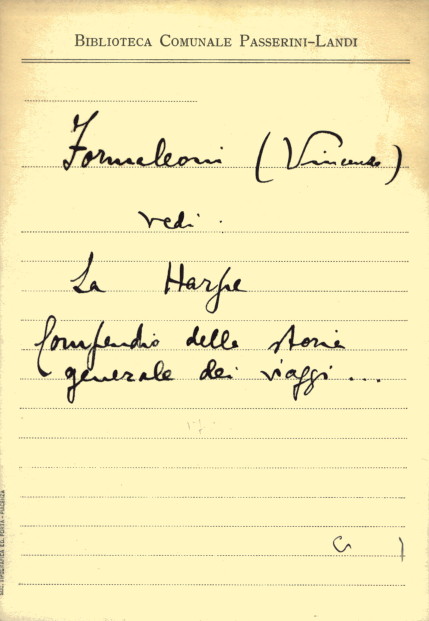 BIBLIOTECA COMUNALE PASSERINI-LANDI
Formaleoni (Vincenzo)
vedi
La Harpe
Compendio della storia
generale dei viaggi ...